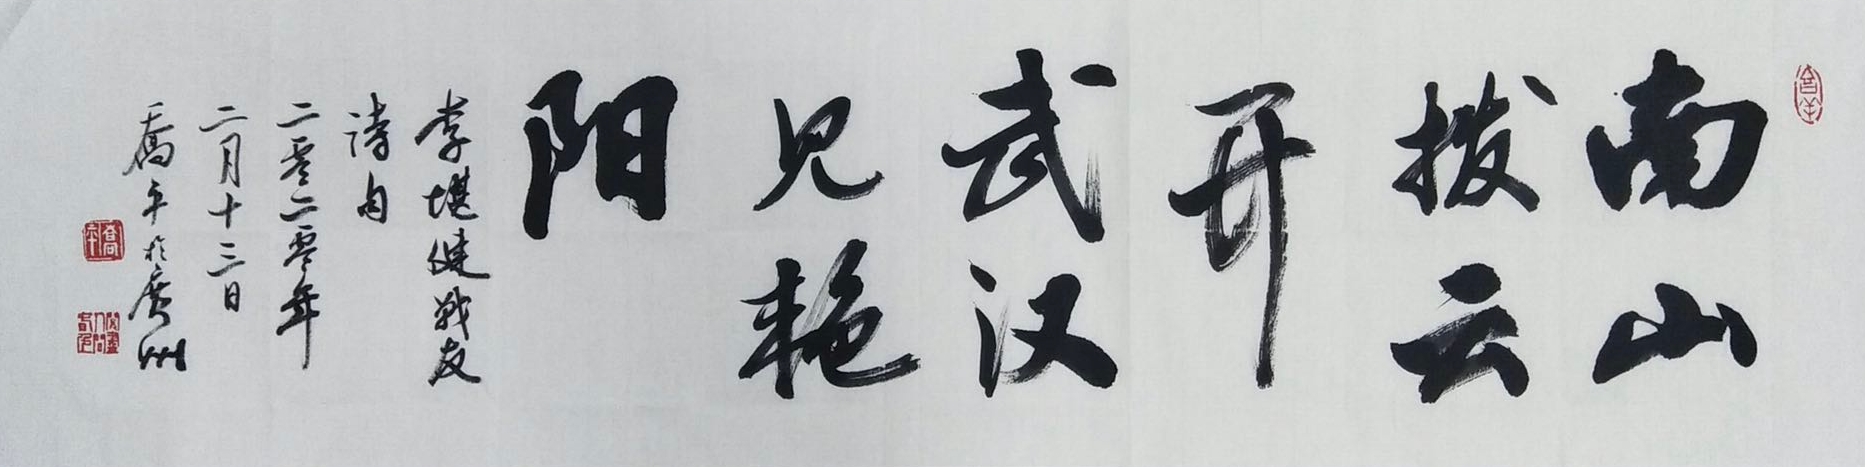 南山
拨云
开
武汉
见艳
阳
李堪健战友
诗句
二零二零年
二月十三日
乔平於广州